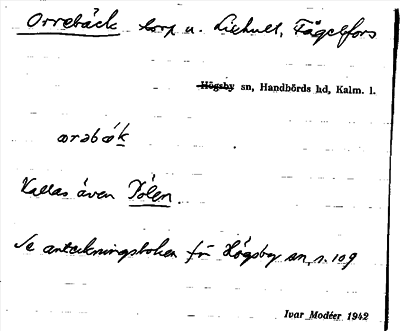 Orrebäck torp u. Liehult, Fågelfors
Högsby sn, Handbörds hd, Kalm. l.
ɷrəbæk
Kallas även Pólen.
Se anteckningsboken för Högsby sn, s. 109
Ivar Modéer 1942